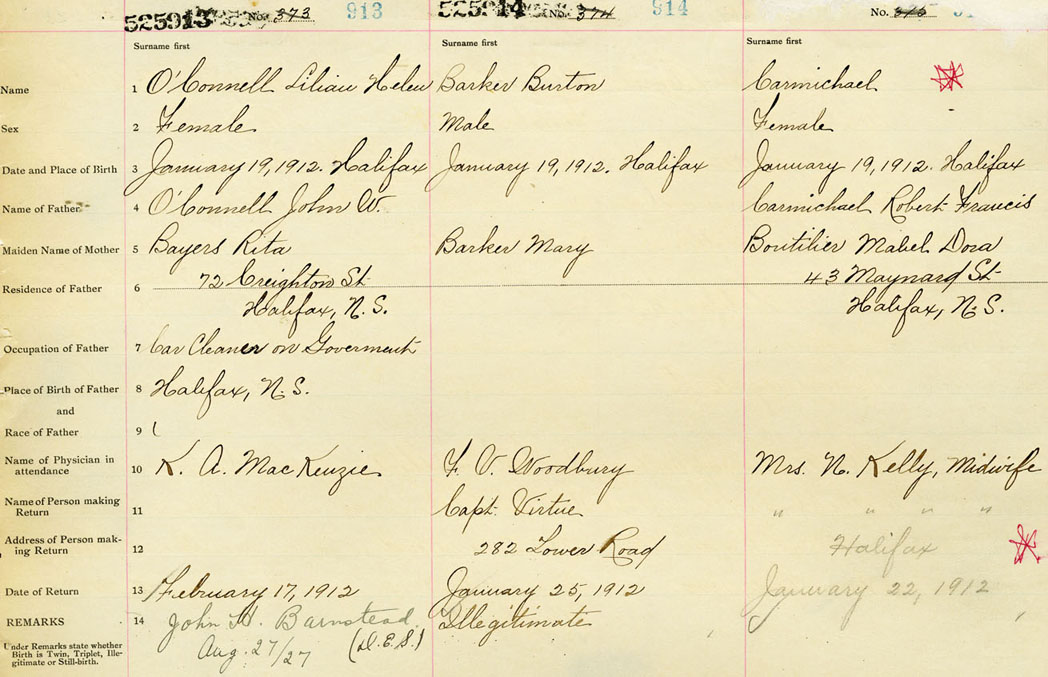 525913 No. 373 913 525914 No. 374 914 No. 375
Surname first Surname first Surname first
Name 1 O'Connell Lilian Helen Barker Burton Carmichael
Sex 2 Female Male Female
Date and Place of Birth 3 January 19, 1912. Halifax January 19, 1912. Halifax January 19, 1912. Halifax
Name of Father 4 O'Connell John W. Carmichael Robert Francis
Maiden Name of Mother 5 Bayers Rita Barker Mary Boutilier Mabel Dora
Residence of Father 6 72 Creighton St 43 Maynard St
Halifax, N.S. Halifax, N.S.
Occupation of Father 7 Car Cleaner on Goverment
Place of Birth of Father 8 Halifax, N.S.
and
Race of Father 9
Name of Physician in
attendance 10 K. A. MacKenzie F. V. Woodbury Mrs. N. Kelly, Midwife
Name of Person making
Return 11 Capt. Virtue " " " "
Address of Person mak-
ing Return 12 282 Lower Road Halifax
Date of Return 13 February 17, 1912 January 25, 1912 January 22, 1912
REMARKS 14 John H. Barnstead Illegitimate
Aug. 27/27 (D.E.S.)
Under Remarks state whether
Birth is Twin, Triplet, Ille-
gitimate or Still-birth.